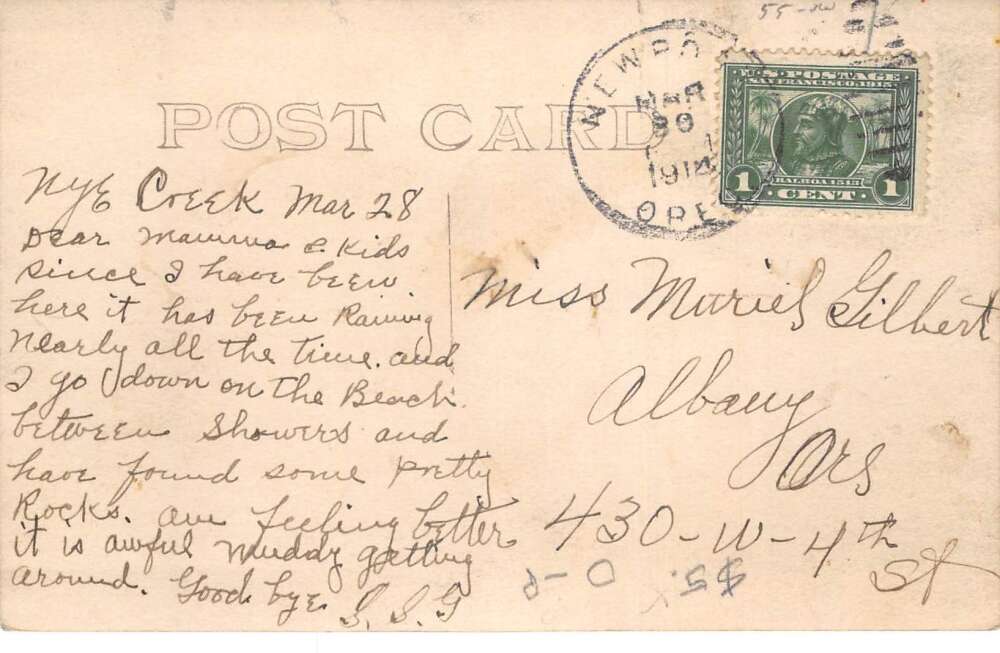 55-
NEWPO
MAR
30
1914
ORE
U.S. POSTAGE
SAN FRANCISCO 1915
BALBOA 1513
1 CENT 1
POST CARD
Nye Creek Mar 28
Dear Mamma & Kids
since I have been
here it has been Raining
nearly all the time. and
I go down on the Beach
between showers and
have found some pretty
Rocks. am feeling better
it is awful muddy getting
around. Good bye
G. S. G
Miss Muriel Gilbert
Albany
Ore
430-W-4th
St
$5.